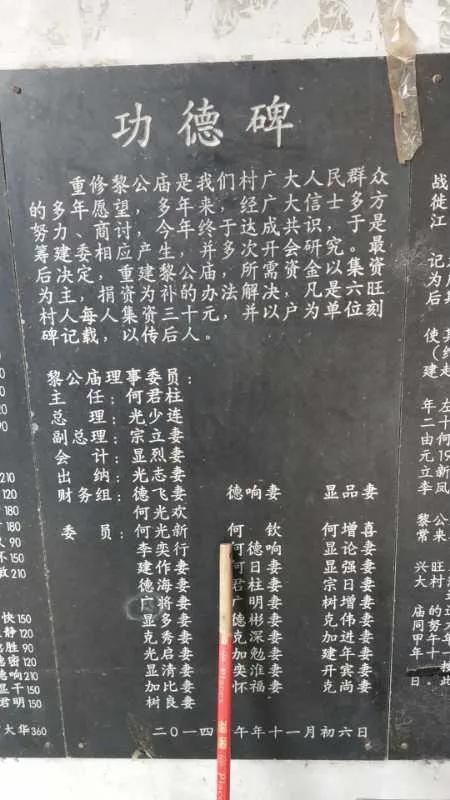 功德碑
重修黎公庙是我们村广大人民群众
的多年愿望，多年来，经广大信士多方
努力、商讨，今年终于达成共识，于是
筹建委相应产生，并多次开会研究。最
后决定，重建黎公庙，所需资金以集资
为主，捐资为补的办法解决，凡是六旺
村人每人集资三十元，并以户为单位刻
碑记载，以传后人。
黎公庙理事委员：
主任：何君柱
总理：光少连
副总理：宗立妻
会计：显烈妻
出纳：光志妻
财务组：德飞妻 德响妻 显品妻
何光欢
委员：何光新 何钦 何增喜
李奕行 何德响 何论强
建作妻 何日妻 显日妻
德海妻 君柱妻 宗增妻
广将妻 广明妻 树伟妻
显多妻 德彬妻 克进妻
克秀妻 克深妻 加年妻
光启妻 加勉妻 建宾妻
显清妻 奕淮妻 开尚妻
加比妻 怀福妻 克
树良妻
二〇一四 午年十一月初六日
210
120
180
90
150
210
快150
静120
胜90
德密120
德响210
显干150
君明150
大华360
战
徙
江
记
为
后
使
(
建
年
二
由
元
立
黎公
常来
兴旺
大村
庙的
同努
甲午
日